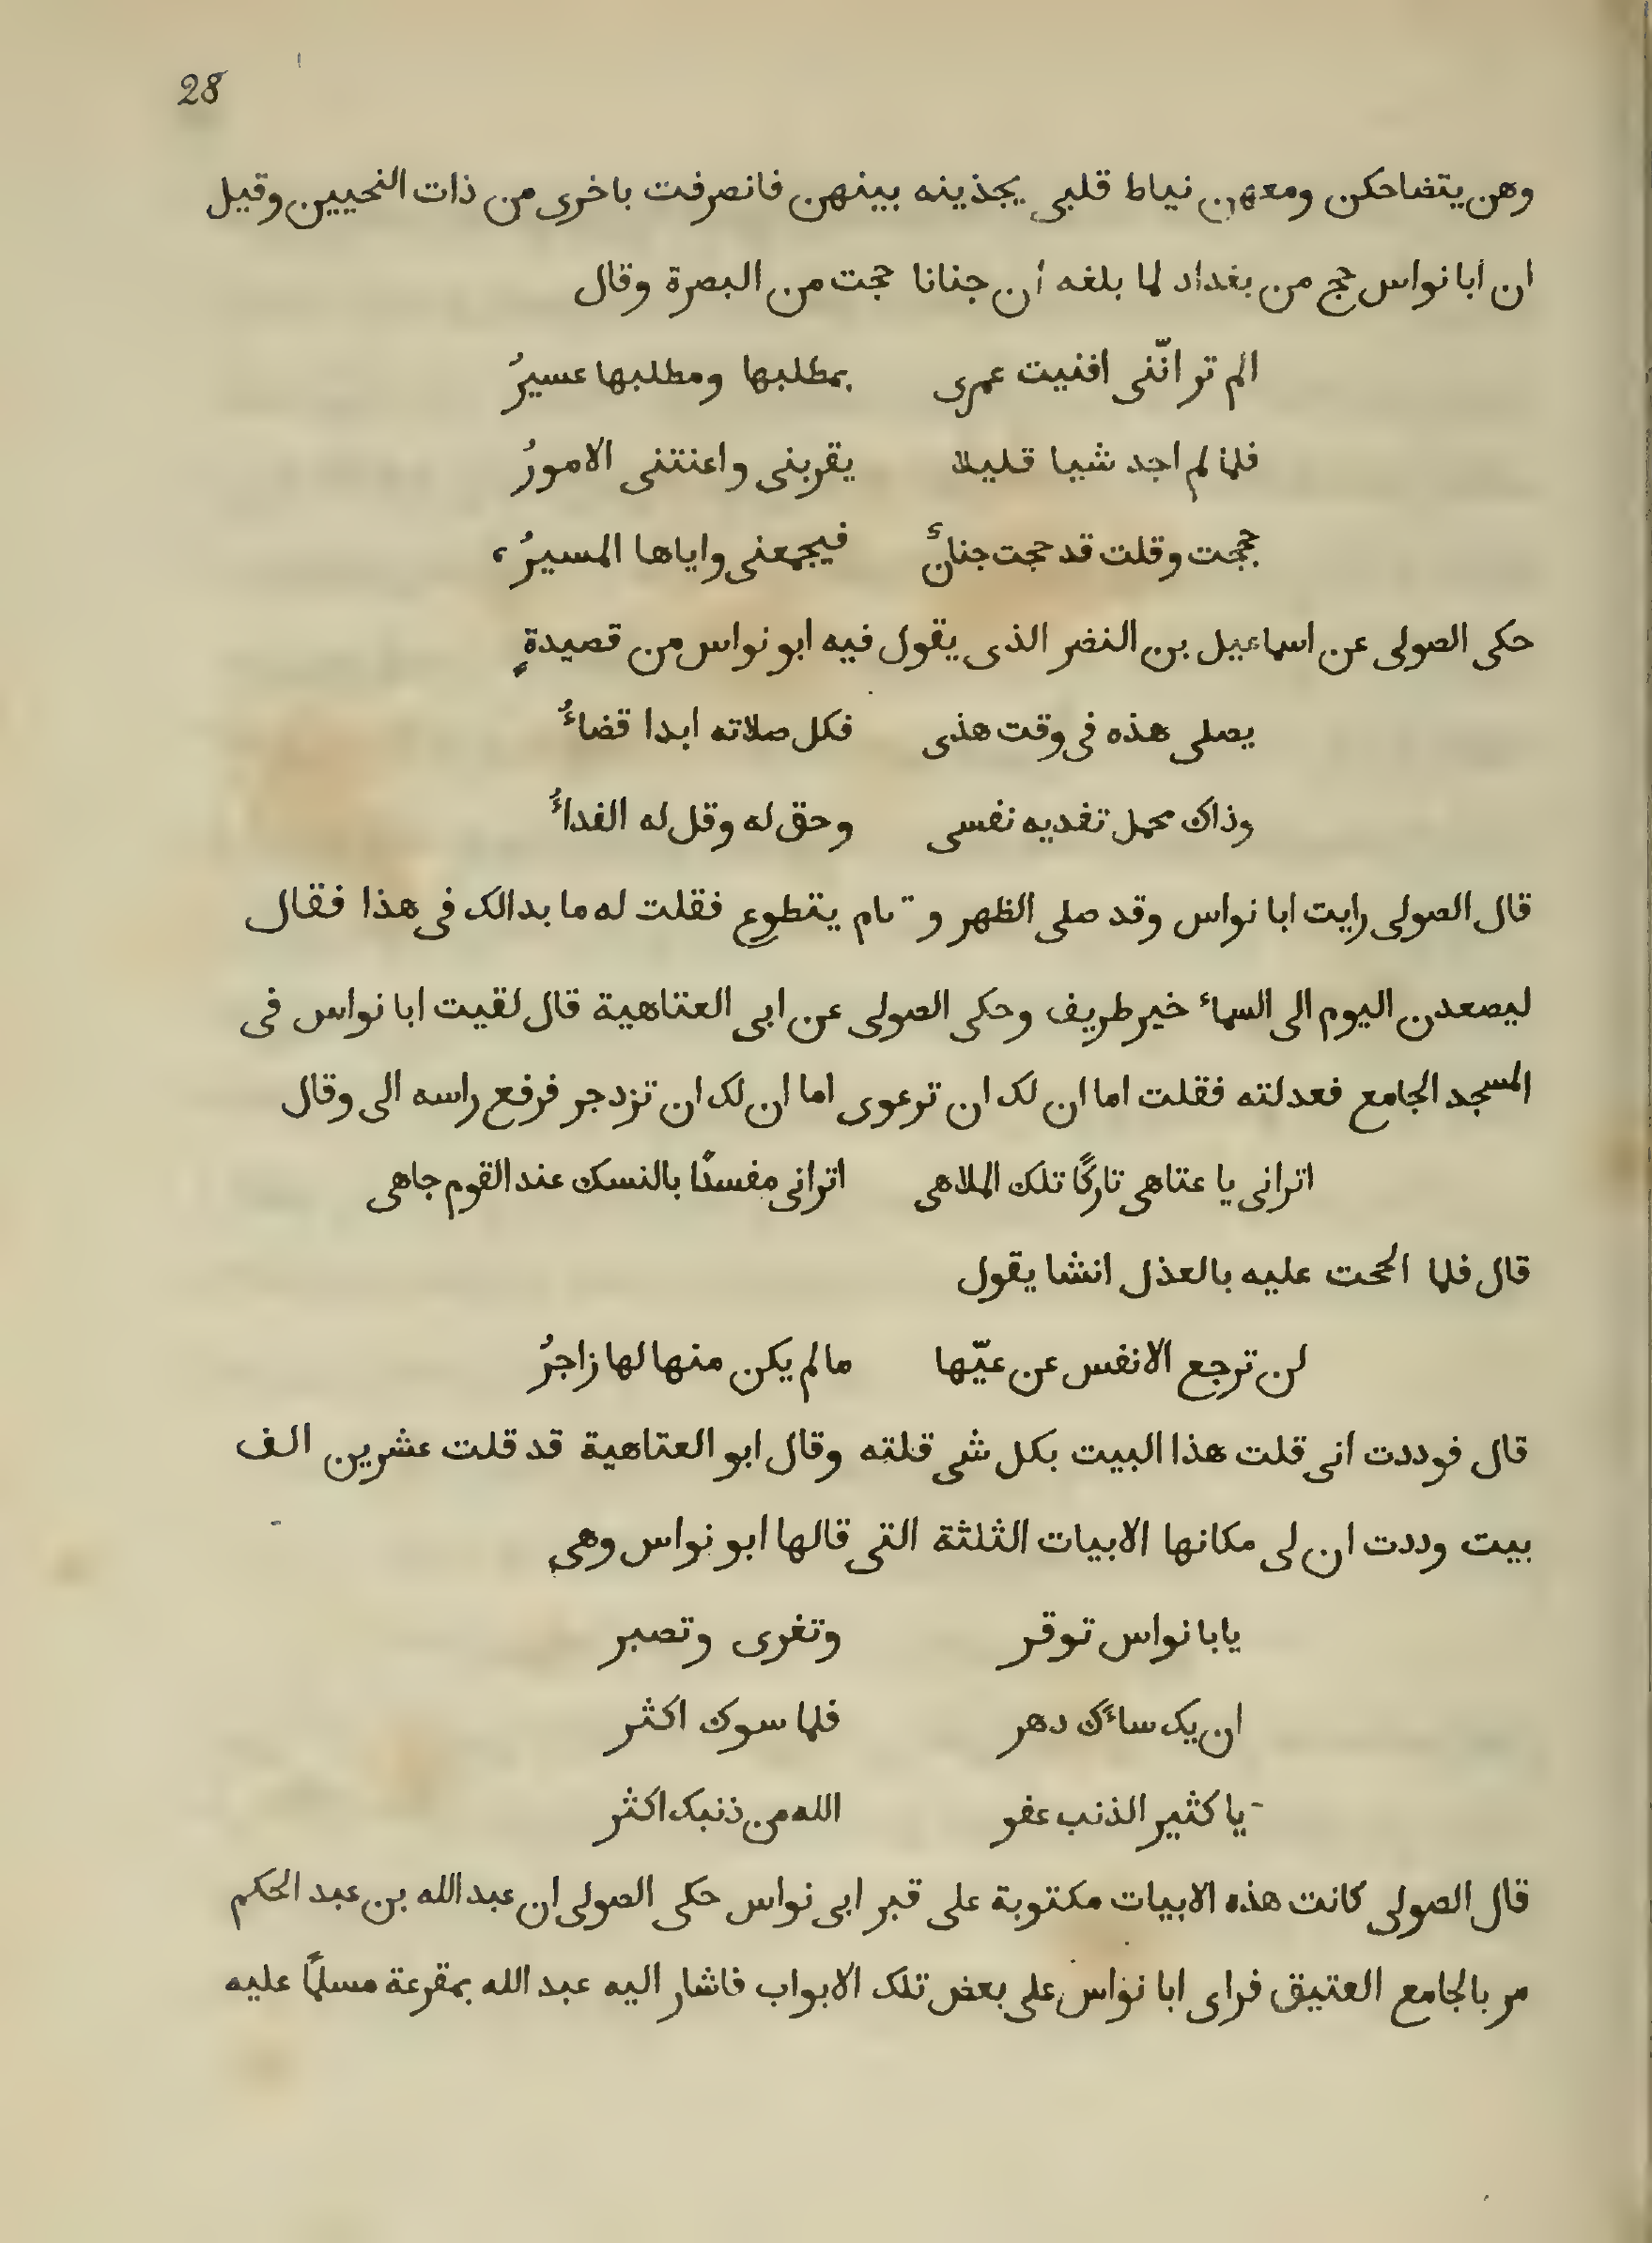 28
وهن يتضاحكن ومعهن نياط قلبى يجذبنه بينهن فانصرفت باخرى من ذات النحيين وقيل
ان ابا نواس حج من بغداد لما بلغه أن جنانا حجت من البصرة وقال
الم تر انّنى افنيت عمرى بمطلبها ومطلبها عسيرُ
فلما لم اجد شيا قليلا يقربنى واعنتنى الامورُ
حججت وقلت قد حجت جنانٌ فيجمعنى واياها المسيرُ
حكى الصولى عن اسماعيل بن النضر الذى يقول فيه ابو نواس من قصيدةٍ
يصلى هذه فى وقت هذى فكل صلاته ابدا قضاءُ
وذاك محمل تفديه نفسى وحق له وقل له الفداءُ
قال الصولى رايت ابا نواس وقد صلى الظهر و يتطوع فقلت له ما بدا لك فى هذا فقال
ليصعدن اليوم الى السماء خير طريف وحكى الصولى عن ابى العتاهية قال لقيت ابا نواس فى
المسجد الجامع فعدلته فقلت اما ان لك ان ترعوى اما ان لك ان تزدجر فرفع راسه الى وقال
اترانى يا عتاهى تاركًا تلك الملاهى اترانى مفسدًا بالنسك عند القوم جاهى
قال فلما الححت عليه بالعذل انشا يقول
لن ترجع الانفس عن عيّها مالم يكن منها لها زاجرُ
قال فوددت انى قلت هذا البيت بكل شى قلته وقال ابو العتاهية قد قلت عشرين الف
بيت وددت ان لى مكانها الابيات الثلثة التى قالها ابو نواس وهى
يابا نواس توقر وتغرى وتصبر
ان يك ساءك دهر فلما سرك اكثر
يا كثير الذنب عفو الله من ذنبك اكثر
قال الصولى كانت هذه الابيات مكتوبة على قبر ابى نواس حكى الصولى ان عبد الله بن عبد الحكم
مر بالجامع العتيق فراى ابا نواس على بعض تلك الابواب فاشار اليه عبد الله بمقرعة مسلمًا عليه